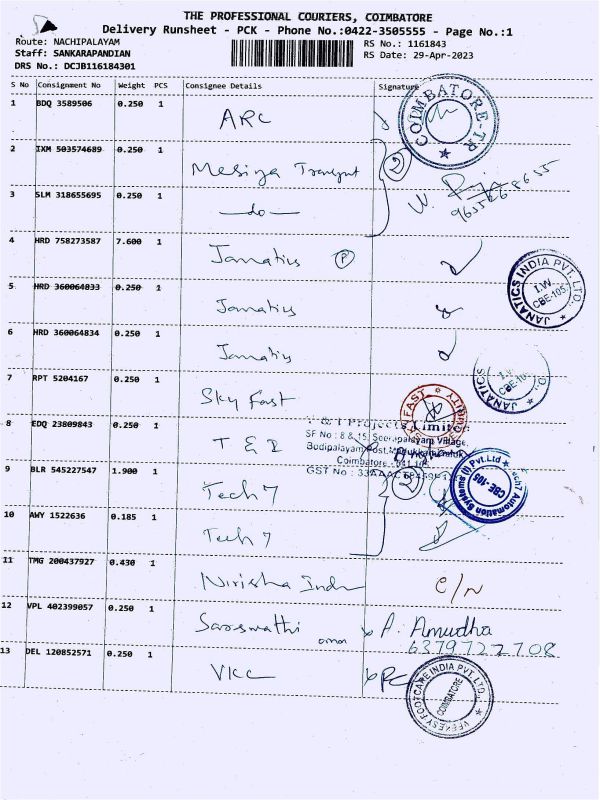 THE PROFESSIONAL COURIERS, COIMBATORE
Delivery Runsheet - PCK - Phone No.:0422-3505555 - Page No.:1
Route: NACHIPALAYAM
Staff: SANKARAPANDIAN
DRS No.: DCJB116184301
RS No.: 1161843
RS Date: 29-Apr-2023
S No Consignment No Weight PCS Consignee Details Signature
1 BDQ 3589506 0.250 1 ARC
COIMBATORE-TR
2 IXM 503574689 0.250 1 Mesiya Transport
2
3 SLM 318655695 0.250 1 -do-
4 HRD 758273587 7.600 1 Janatics P
JANATICS INDIA PVT. LTD. I.W. CBE-105.
5 HRD 360064833 0.250 1 Janatics
6 HRD 360064834 0.250 1 Janatics
JANATICS I.W. CBE-105
7 RPT 5204167 0.250 1 Sky Fast
FAST
8 EDQ 23809843 0.250 1 T & I
T & I Projects Limited
SF No : 8 & 15, Seerapalayam Village,
Bodipalayam Post, Madukkarai Taluk
Coimbatore - 641 105
GST No :
9 BLR 545227547 1.900 1 Tech 7
2
Tech7 Automation Systems (I) Pvt.Ltd CBE-105
10 AWY 1522636 0.185 1 Tech 7
11 TMG 200437927 0.430 1 Nirisha C/N
12 VPL 402399057 0.250 1 Saraswathi A. Amudha
6379727708
13 DEL 120852571 0.250 1 VKC
VEEKESY FOOTCARE INDIA PVT. LTD. COIMBATORE